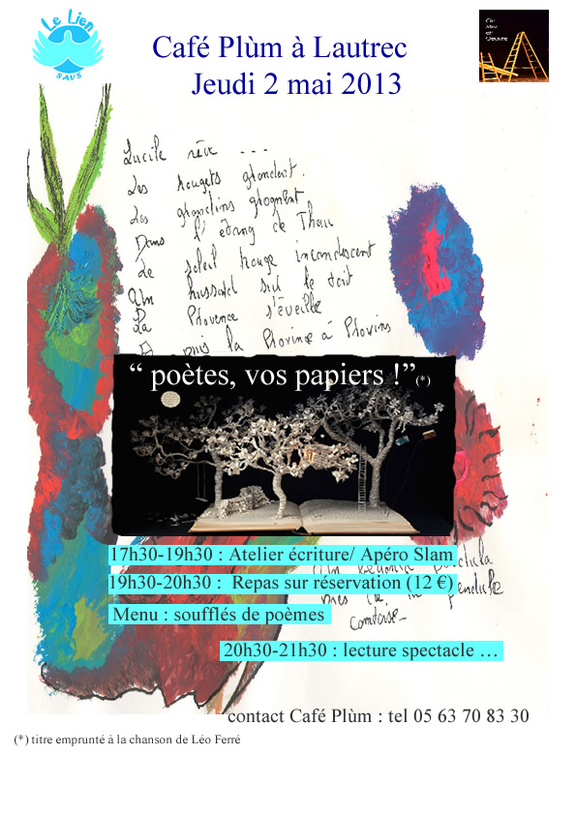 Le Lien
SAVS
Café Plùm à Lautrec
Jeudi 2 mai 2013
Lucile rêve ...
Les rougets grondent.
Les grondins grognent
Dans l'étang de Thau
Le soleil rouge incandescent
Un hussard sur le toit
La Provence s'éveille
puis la Province à Provins
“ poètes, vos papiers !”(*)
17h30-19h30 : Atelier écriture/ Apéro Slam
19h30-20h30 : Repas sur réservation (12 €)
Menu : soufflés de poèmes
pendule
comtoise
20h30-21h30 : lecture spectacle …
contact Café Plùm : tel 05 63 70 83 30
(*) titre emprunté à la chanson de Léo Ferré